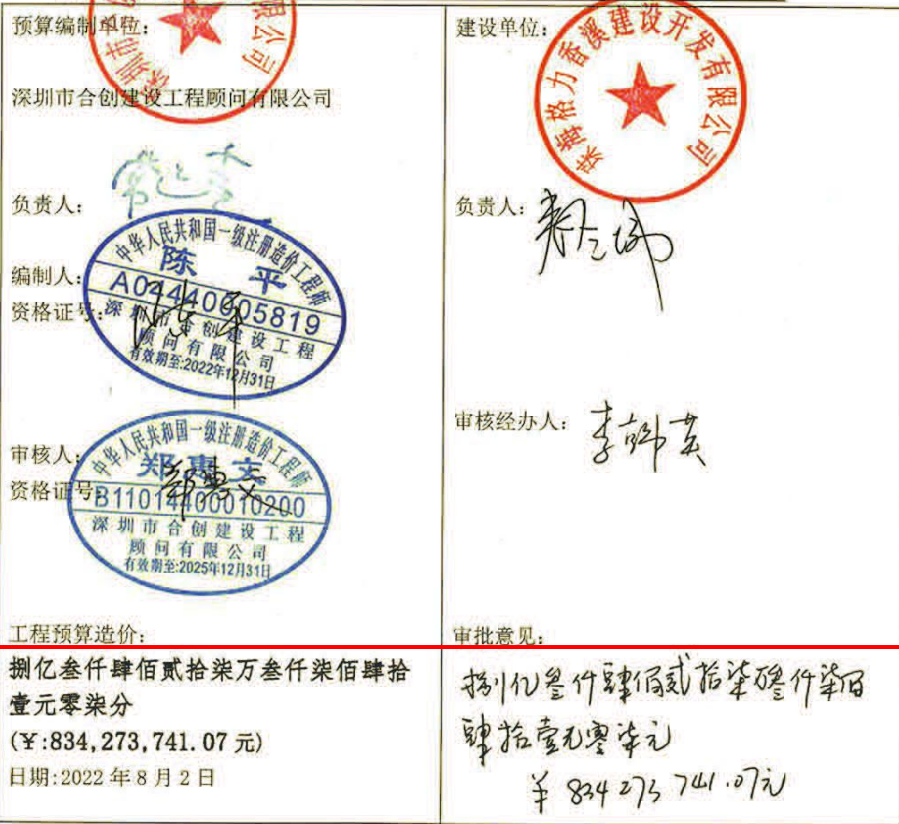 预算编制单位:
深圳市合创建设工程顾问有限公司
负责人:
中华人民共和国一级注册造价工程师
陈 平
编制人:
A04440005819
资格证号:
深圳市合创建设工程
顾问有限公司
有效期至:2022年12月31日
审核人:
中华人民共和国一级注册造价工程师
郑惠文
资格证号:
B11014400010200
深圳市合创建设工程
顾问有限公司
有效期至:2025年12月31日
工程预算造价:
捌亿叁仟肆佰贰拾柒万叁仟柒佰肆拾
壹元零柒分
(¥:834,273,741.07 元)
日期:2022 年 8 月 2 日
建设单位:
珠海格力香溪建设开发有限公司
负责人:
审核经办人:
审批意见:
捌亿叁仟肆佰贰拾柒万叁仟柒佰
肆拾壹元零柒元
¥ 834 273 741.07元